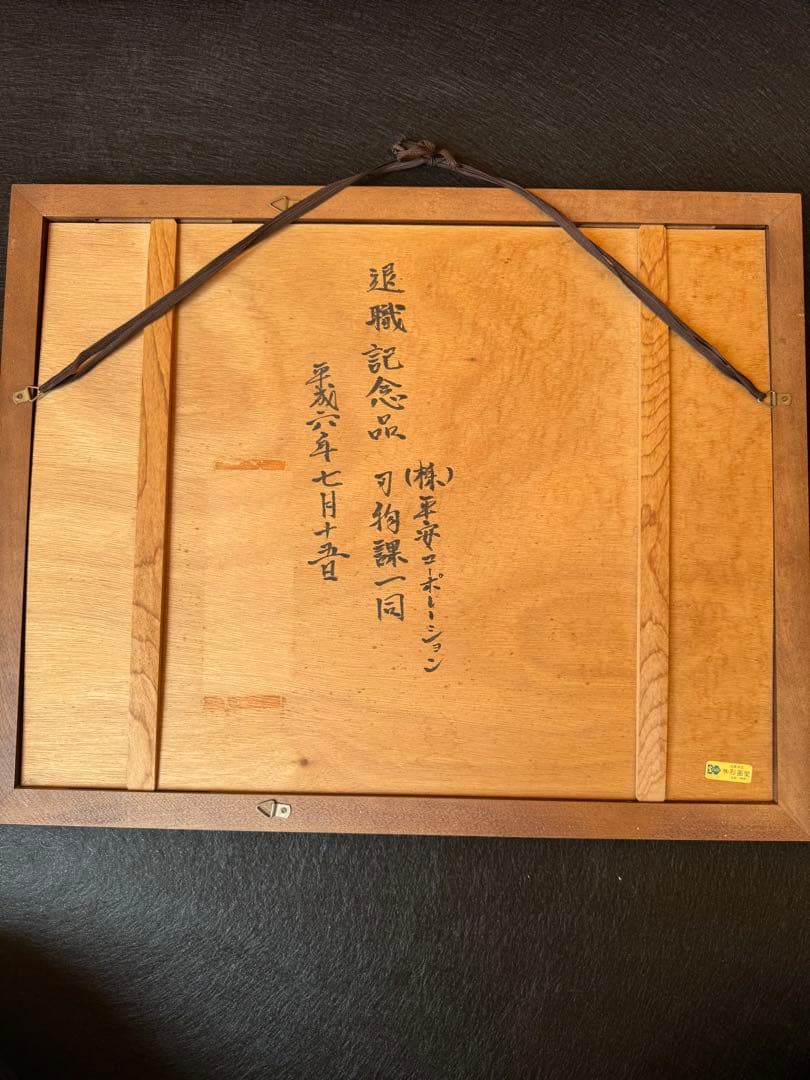 (株)平安コーポレーション
退職記念品 刃物課一同
平成六年七月十五日